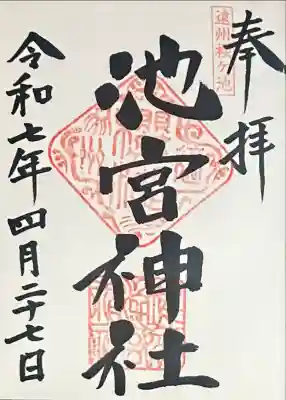 奉拝
遠州桜ケ池
池宮神社
令和七年四月二十七日